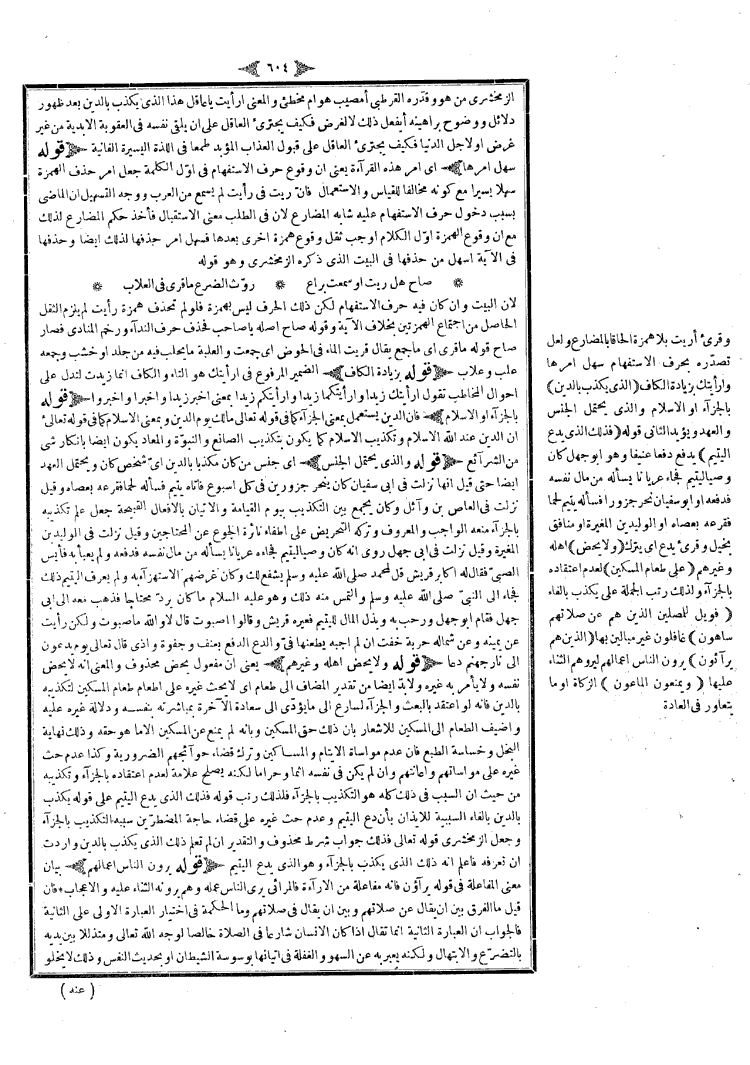 ﴿ ٦٠٤ ﴾
الزمخشرى من هو وقدره القرطبى أمصيب هو ام مخطئ والمعنى ارأيت ياعاقل هذا الذى يكذب بالدين بعد ظهور
دلائل ووضوح براهينه أيفعل ذلك لالغرض فكيف يجترئ العاقل على ان يلقى نفسه فى العقوبة الابدية من غير
غرض او لاجل الدنيا فكيف يجترئ العاقل على قبول العذاب المؤبد طمعا فى اللذة اليسيرة الفانية ﴿قوله
سهل امرها﴾ اى امر هذه القرآءة يعنى ان وقوع حرف الاستفهام فى اوّل الكلمة جعل امر حذف الهمزة
سهلا يسيرا مع كونه مخالفا للقياس والاستعمال فانّ ريت فى رأيت لم يسمع من العرب ووجه التسهيل ان الماضى
بسبب دخول حرف الاستفهام عليه شابه المضارع لان فى الطلب معنى الاستقبال فأخذ حكم المضارع لذلك
مع ان وقوع الهمزة اوّل الكلام اوجب ثقل وقوع همزة اخرى بعدها فسهل امر حذفها لذلك ايضا وحذفها
فى الآية اسهل من حذفها فى البيت الذى ذكره الزمخشرى وهو قوله
* صاح هل ريت او سمعت براع * ردّ فى الضرع ماقرى فى العلاب *
لان البيت وان كان فيه حرف الاستفهام لكن ذلك الحرف ليس بهمزة فلو لم تحذف همزة رأيت لم يلزم الثقل
الحاصل من اجتماع الهمزتين بخلاف الآية وقوله صاح اصله ياصاحب فحذف حرف الندآء ورخم المنادى فصار
صاح قوله ماقرى اى ماجمع يقال قريت الماء فى الحوض اى جمعت والعلبة مايحلب فيه من جلد او خشب وجمعه
علب وعلاب ﴿قوله بزيادة الكاف﴾ الضمير المرفوع فى ارأيتك هو التاء والكاف انما زيدت لتدل على
احوال المخاطب تقول ارأيتك زيدا وارأيتكما زيدا وارأيتكم زيدا بمعنى اخبر زيدا واخبرا واخبروا ﴿قوله
بالجزآء او الاسلام﴾ فان الدين يستعمل بمعنى الجزآء كما فى قوله تعالى مالك يوم الدين وبمعنى الاسلام كما فى قوله تعالى
ان الدين عند الله الاسلام وتكذيب الاسلام كما يكون بتكذيب الصانع والنبوّة والمعاد يكون ايضا بانكار شئ
من الشرآئع ﴿قوله والذى يحتمل الجنس﴾ اى جنس من كان مكذبا بالدين اىّ شخص كان ويحتمل العهد
ايضا حتى قيل انها نزلت فى ابى سفيان كان ينحر جزورين فى كل اسبوع فاتاه يتيم فسأله لحما فقرعه بعصاه وقيل
نزلت فى العاص بن وآئل وكان يجمع بين التكذيب بيوم القيامة والاتيان بالافعال القبيحة جعل علم تكذيبه
بالجزآء منعه الواجب والمعروف وتركه التحريض على اطفاء نائرة الجوع عن المحتاجين وقيل نزلت فى الوليد بن
المغيرة وقيل نزلت فى ابى جهل روى انه كان وصيا ليتيم فجاءه عريانا يسأله من مال نفسه فدفعه ولم يعبأ به فأيس
الصبىّ فقال له اكابر قريش قل لمحمد صلى الله عليه وسلم يشفع لك وكان غرضهم الاستهزآء به ولم يعرف اليتيم ذلك
فجاء الى النبىّ صلى الله عليه وسلم والتمس منه ذلك وهو عليه السلام ماكان يردّ محتاجا فذهب معه الى ابى
جهل فقام ابو جهل ورحب به وبذل المال لليتيم فعيره قريش وقالوا اصبوت قال لا والله ماصبوت ولكن رأيت
عن يمينه وعن شماله حربة خفت ان لم اجبه يطعنها فىّ والدع الدفع بعنف وجفوة واذى قال تعالى يوم يدعون
الى نار جهنم دعا ﴿قوله ولا يحض اهله وغيرهم﴾ يعنى ان مفعول يحض محذوف والمعنى انه لا يحض
نفسه ولا يأمر به غيره ولا بدّ ايضا من تقدير المضاف الى طعام اى لا يحث غيره على اطعام طعام المسكين لتكذيبه
بالدين فانه لو اعتقد بالبعث والجزآء لسارع الى مايؤدّى الى سعادة الآخرة بمباشرته بنفسه ودلالة غيره عليه
واضيف الطعام الى المسكين للاشعار بان ذلك حق المسكين وبانه لم يمنع عن المسكين الا ما هو حقه وذلك نهاية
البخل وخساسة الطبع فان عدم مواساة الايتام والمساكين وترك قضاء حوآئجهم الضرورية وكذا عدم حث
غيره على مواساتهم واعانتهم وان لم يكن فى نفسه انما وحراما لكنه يصلح علامة لعدم اعتقاده بالجزآء وتكذيبه
من حيث ان السبب فى ذلك كله هو التكذيب بالجزآء فلذلك رتب قوله فذلك الذى يدع اليتيم على قوله يكذب
بالدين بالفاء السببية للايذان بأن دع اليتيم وعدم حث غيره على قضاء حاجة المضطرّين سببه التكذيب بالجزآء
وجعل الزمخشرى قوله تعالى فذلك جواب شرط محذوف والتقدير ان لم تعلم ذلك الذى يكذب بالدين واردت
ان تعرفه فاعلم انه ذلك الذى يكذب بالجزآء وهو الذى يدع اليتيم ﴿قوله يرون الناس اعمالهم﴾ بيان
معنى المفاعلة فى قوله يرآؤن فانه مفاعلة من الارآءة فالمرائى يرى الناس عمله وهم يرونه الثناء عليه والاعجاب * فان
قيل ما الفرق بين ان يقال عن صلاتهم وبين ان يقال فى صلاتهم وما الحكمة فى اختيار العبارة الاولى على الثانية
فالجواب ان العبارة الثانية انما تقال اذا كان الانسان شارعا فى الصلاة خالصا لوجه الله تعالى ومتذللا بين يديه
بالتضرّع والابتهال ولكنه يعبر به عن السهو والغفلة فى اتيانها بوسوسة الشيطان او بحديث النفس وذلك لا يخلو
( عنه )
وقرئ أريت بلا همزة الحاقا بالمضارع ولعل
تصدّره بحرف الاستفهام سهل امرها
وارأيتك بزيادة الكاف (الذى يكذب بالدين)
بالجزآء او الاسلام والذى يحتمل الجنس
والعهد ويؤيد الثانى قوله (فذلك الذى يدع
اليتيم) يدفع دفعا عنيفا وهو ابو جهل كان
وصيا ليتيم فجاءه عريانا يسأله من مال نفسه
فدفعه او ابو سفيان نحر جزورا فسأله يتيم لحما
فقرعه بعصاه او الوليد بن المغيرة او منافق
بخيل وقرئ يدع اى يترك (ولا يحض) اهله
وغيرهم (على طعام المسكين) لعدم اعتقاده
بالجزآء ولذلك رتب الجملة على يكذب بالفاء
(فويل للمصلين الذين هم عن صلاتهم
ساهون) غافلون غير مبالين بها (الذين هم
يرآئون) يرون الناس اعمالهم ليروهم الثناء
عليها (ويمنعون الماعون) الزكاة او ما
يتعاور فى العادة